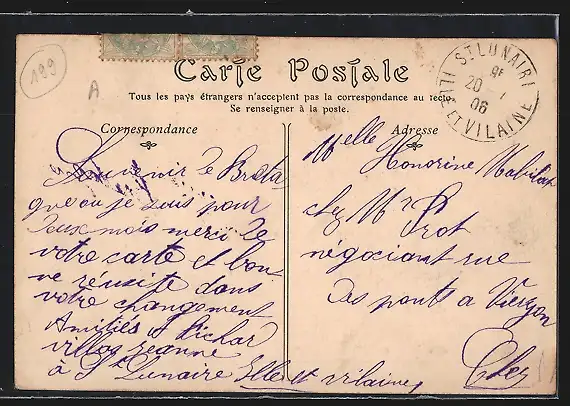 129
A
Carte Postale
Tous les pays étrangers n'acceptent pas la correspondance au recto.
Se renseigner à la poste.
Correspondance
Adresse
ST LUNAIRE
20
06
ILLE ET VILAINE
Souvenir de Breta
gne ou je suis pour
deux mois merci de
votre carte et bon
ne réussite dans
votre changement
Amitiés
villa Jeanne
à St Lunaire Ille et vilaine,
Melle Honorine
chez Mr Prot
négociant rue
des ponts a Vierzon
Cher